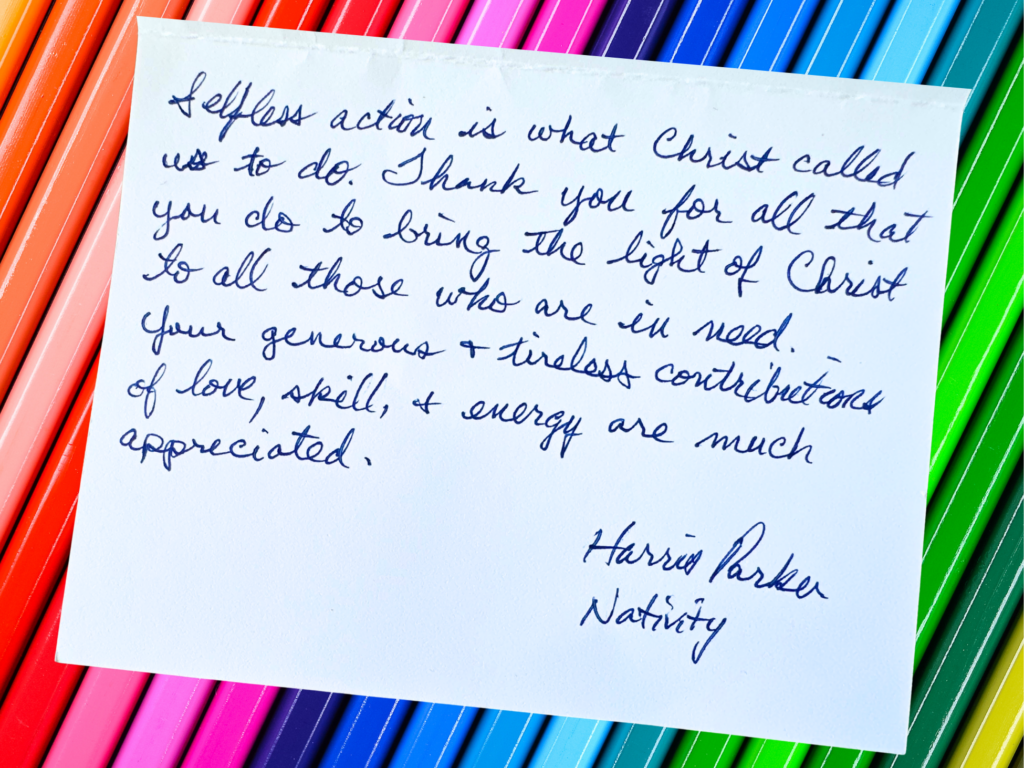 Selfless action is what Christ called
us to do. Thank you for all that
you do to bring the light of Christ
to all those who are in need.
Your generous + tireless contributions
of love, skill, + energy are much
appreciated.
Harris Parker
Nativity